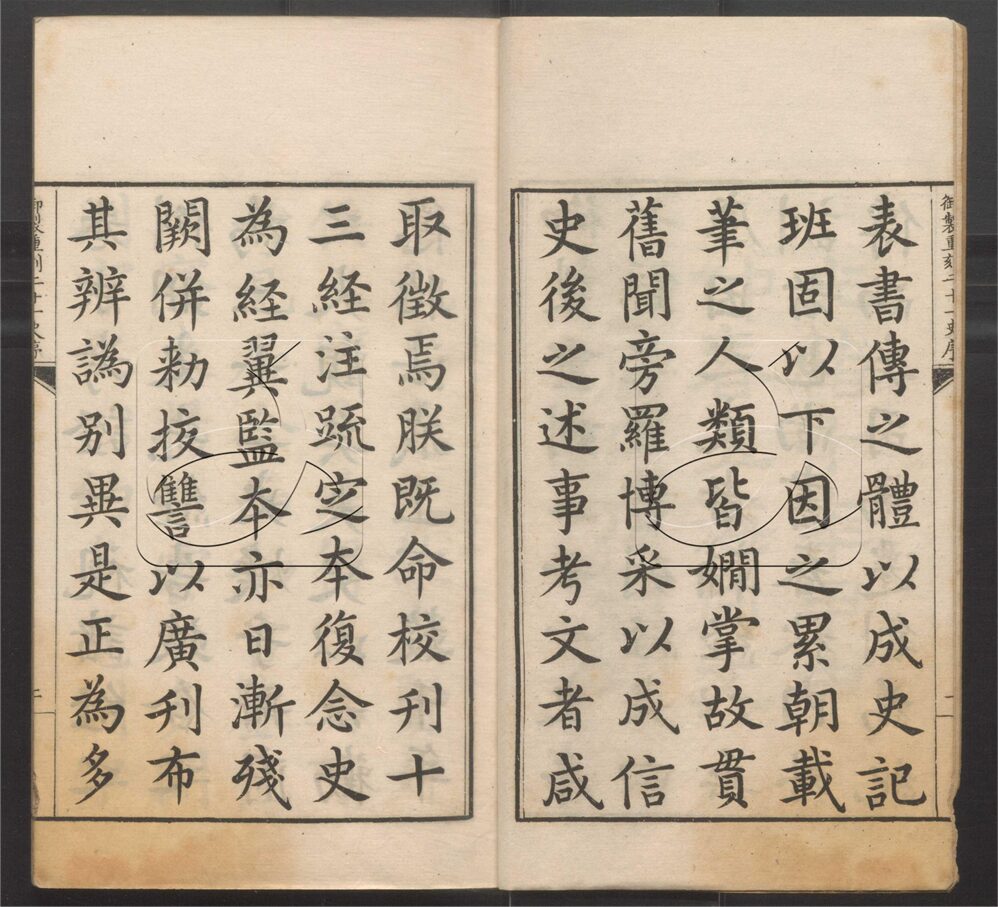 御製重刻二十一史序
表書傳之體以成史記
班固以下因之累朝載
筆之人類皆嫺掌故貫
舊聞旁羅博采以成信
史後之述事考文者咸
取徵焉朕既命校刊十
三経注疏定本復念史
為経翼監本亦日漸殘
闕併勅挍讐以廣刋布
其辨譌別異是正為多